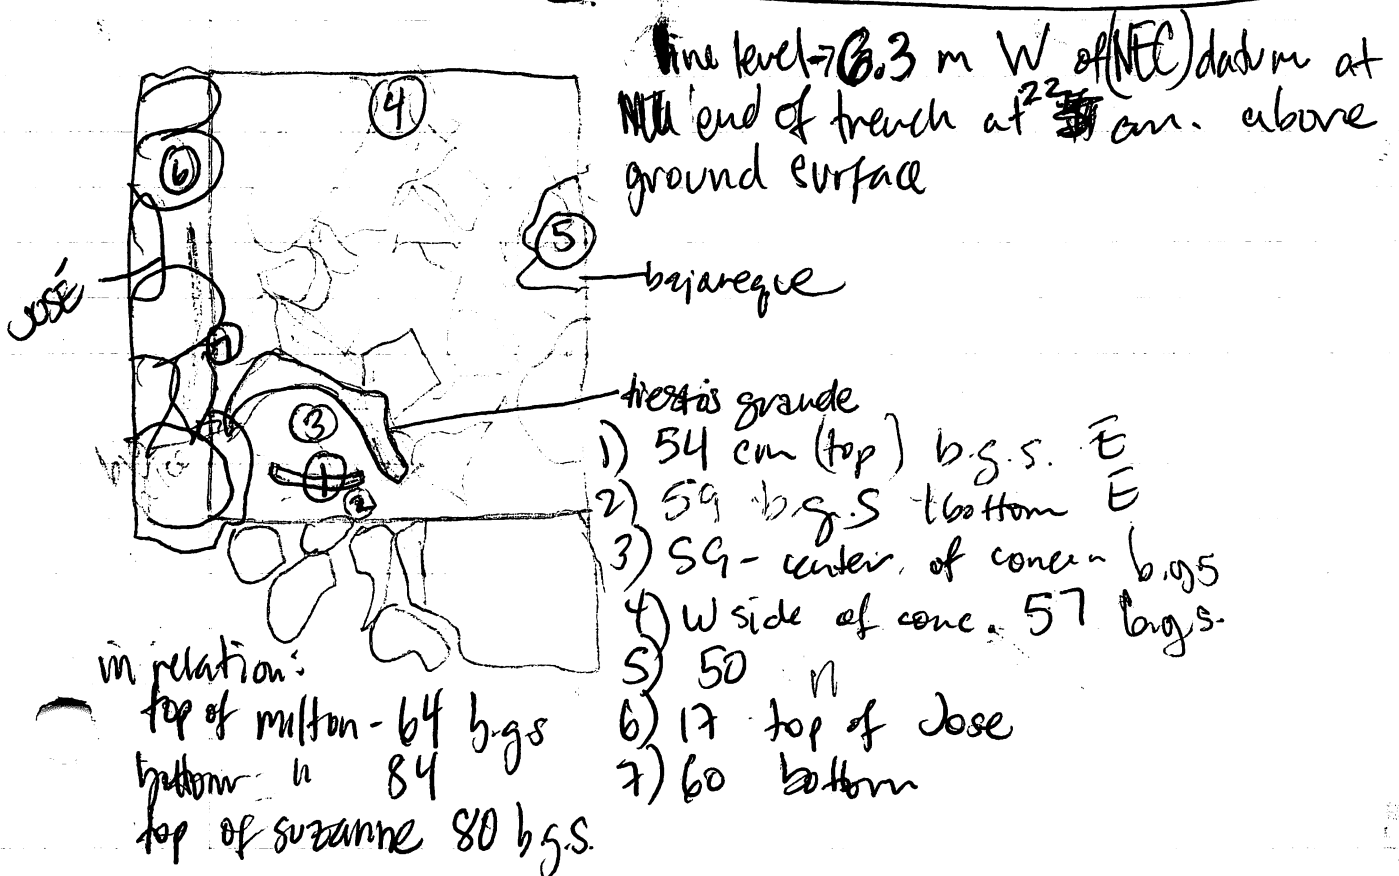 line level → 6.3 m W of (NEC) datum at
end of trench at 22 cm. above
ground surface
4
6
5
JOSÉ
bajareque
7
tiestos grande
3
1
2
1) 54 cm (top) b.g.s. E
2) 59 b.g.s bottom E
3) 59 - center of concen b.g.s
4) W side of conc. 57 b.g.s.
5) 50 "
6) 17 top of Jose
7) 60 bottom
in relation:
top of milton - 64 b.g.s
bottom " 84
top of suzanne 80 b.g.s.